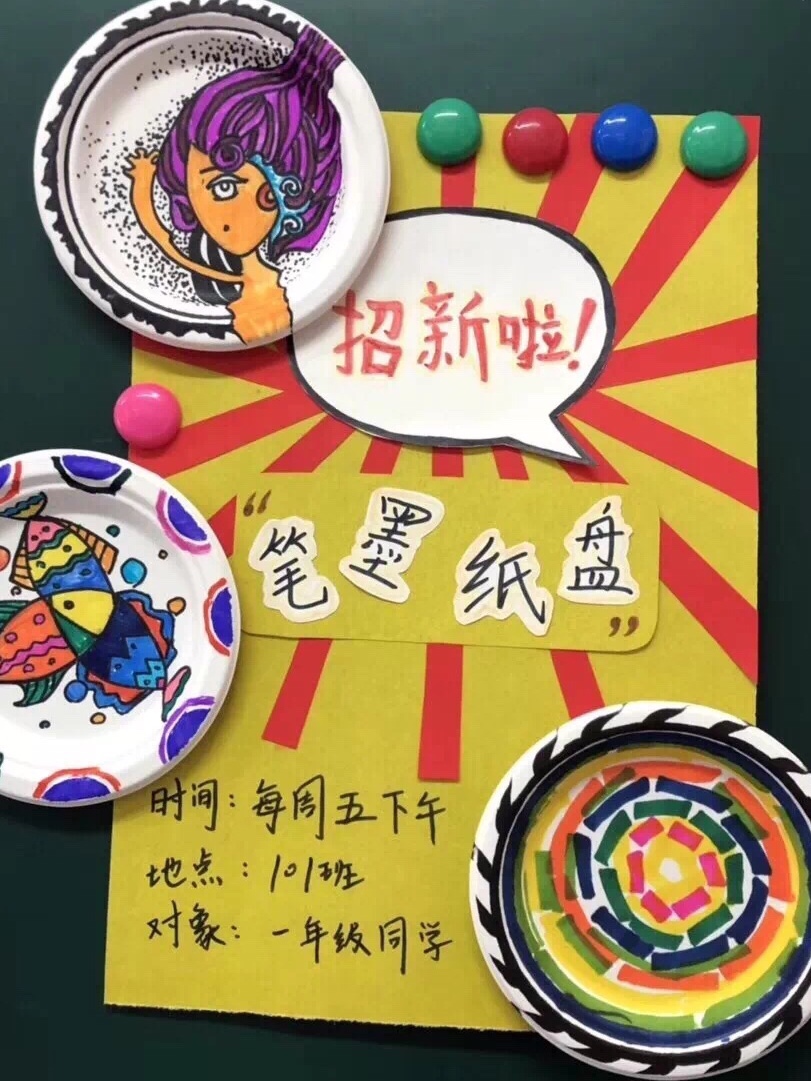 招新啦!
“笔墨纸盘”
时间:每周五下午
地点:101班
对象:一年级同学